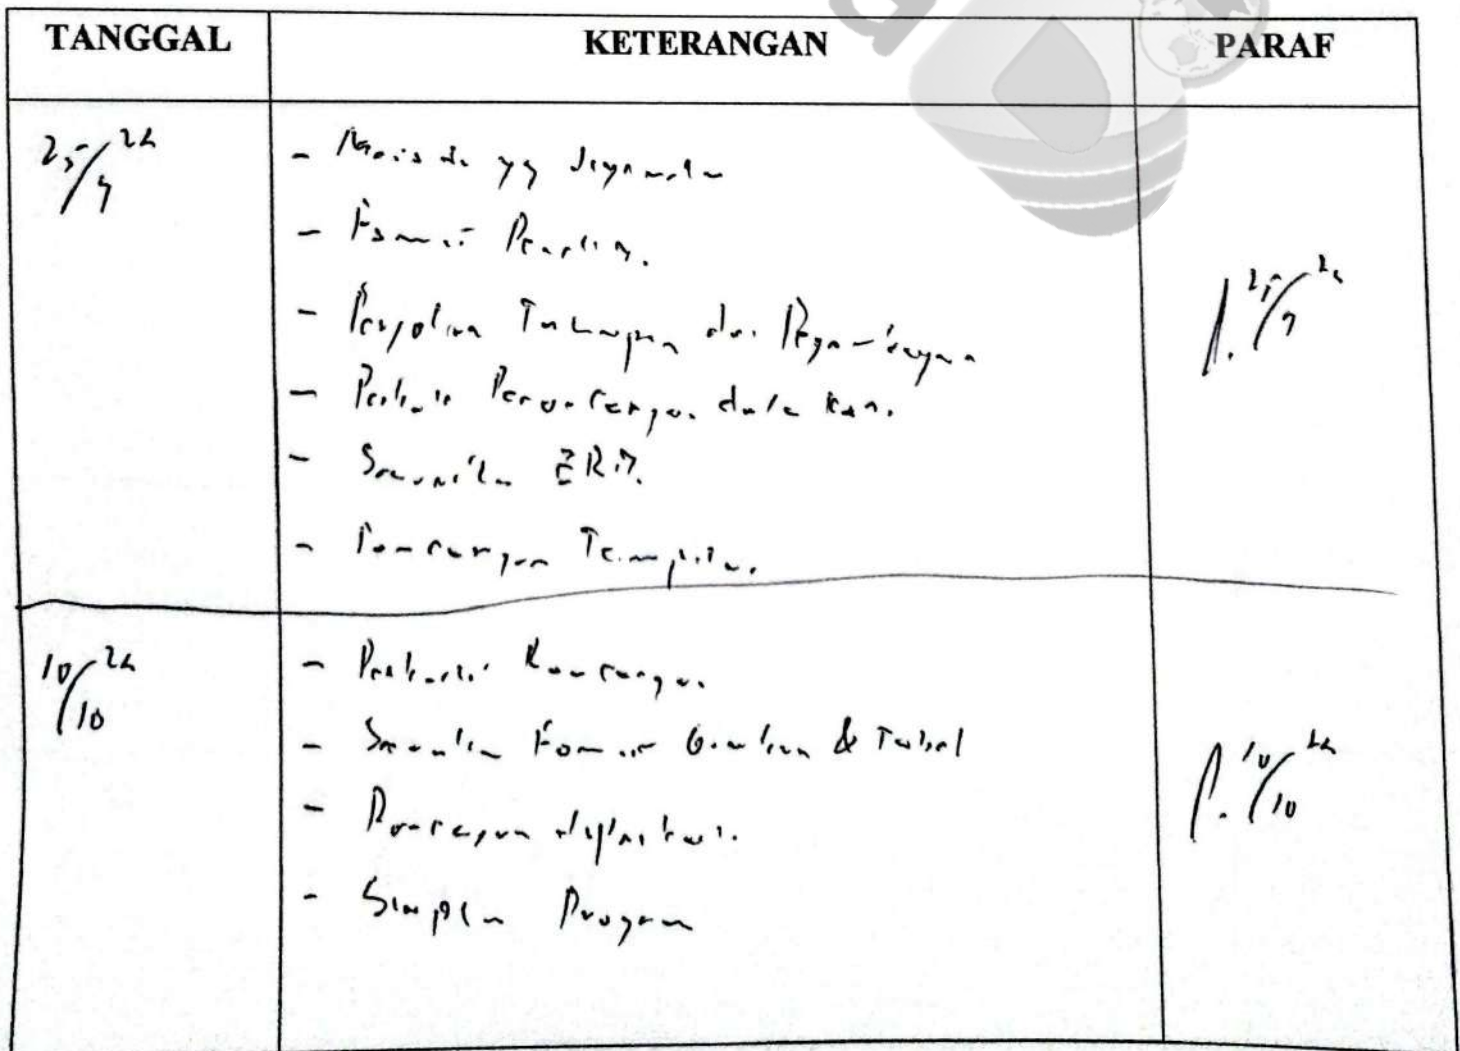 TANGGAL KETERANGAN PARAF
25/9 24
- yg digunakan
- Format Penulisan.
- Penjelasan Tahapan dari Pengembangan
- Perbaiki Perancangan
- Sesuaikan ERD.
- Rancangan Tampilan.
25/9 24
10/10 24
- Perbaiki Rancangan
- Sesuaikan Format Gambar & Tabel
- Rancangan diperbaiki.
- Siapkan Program
10/10 24